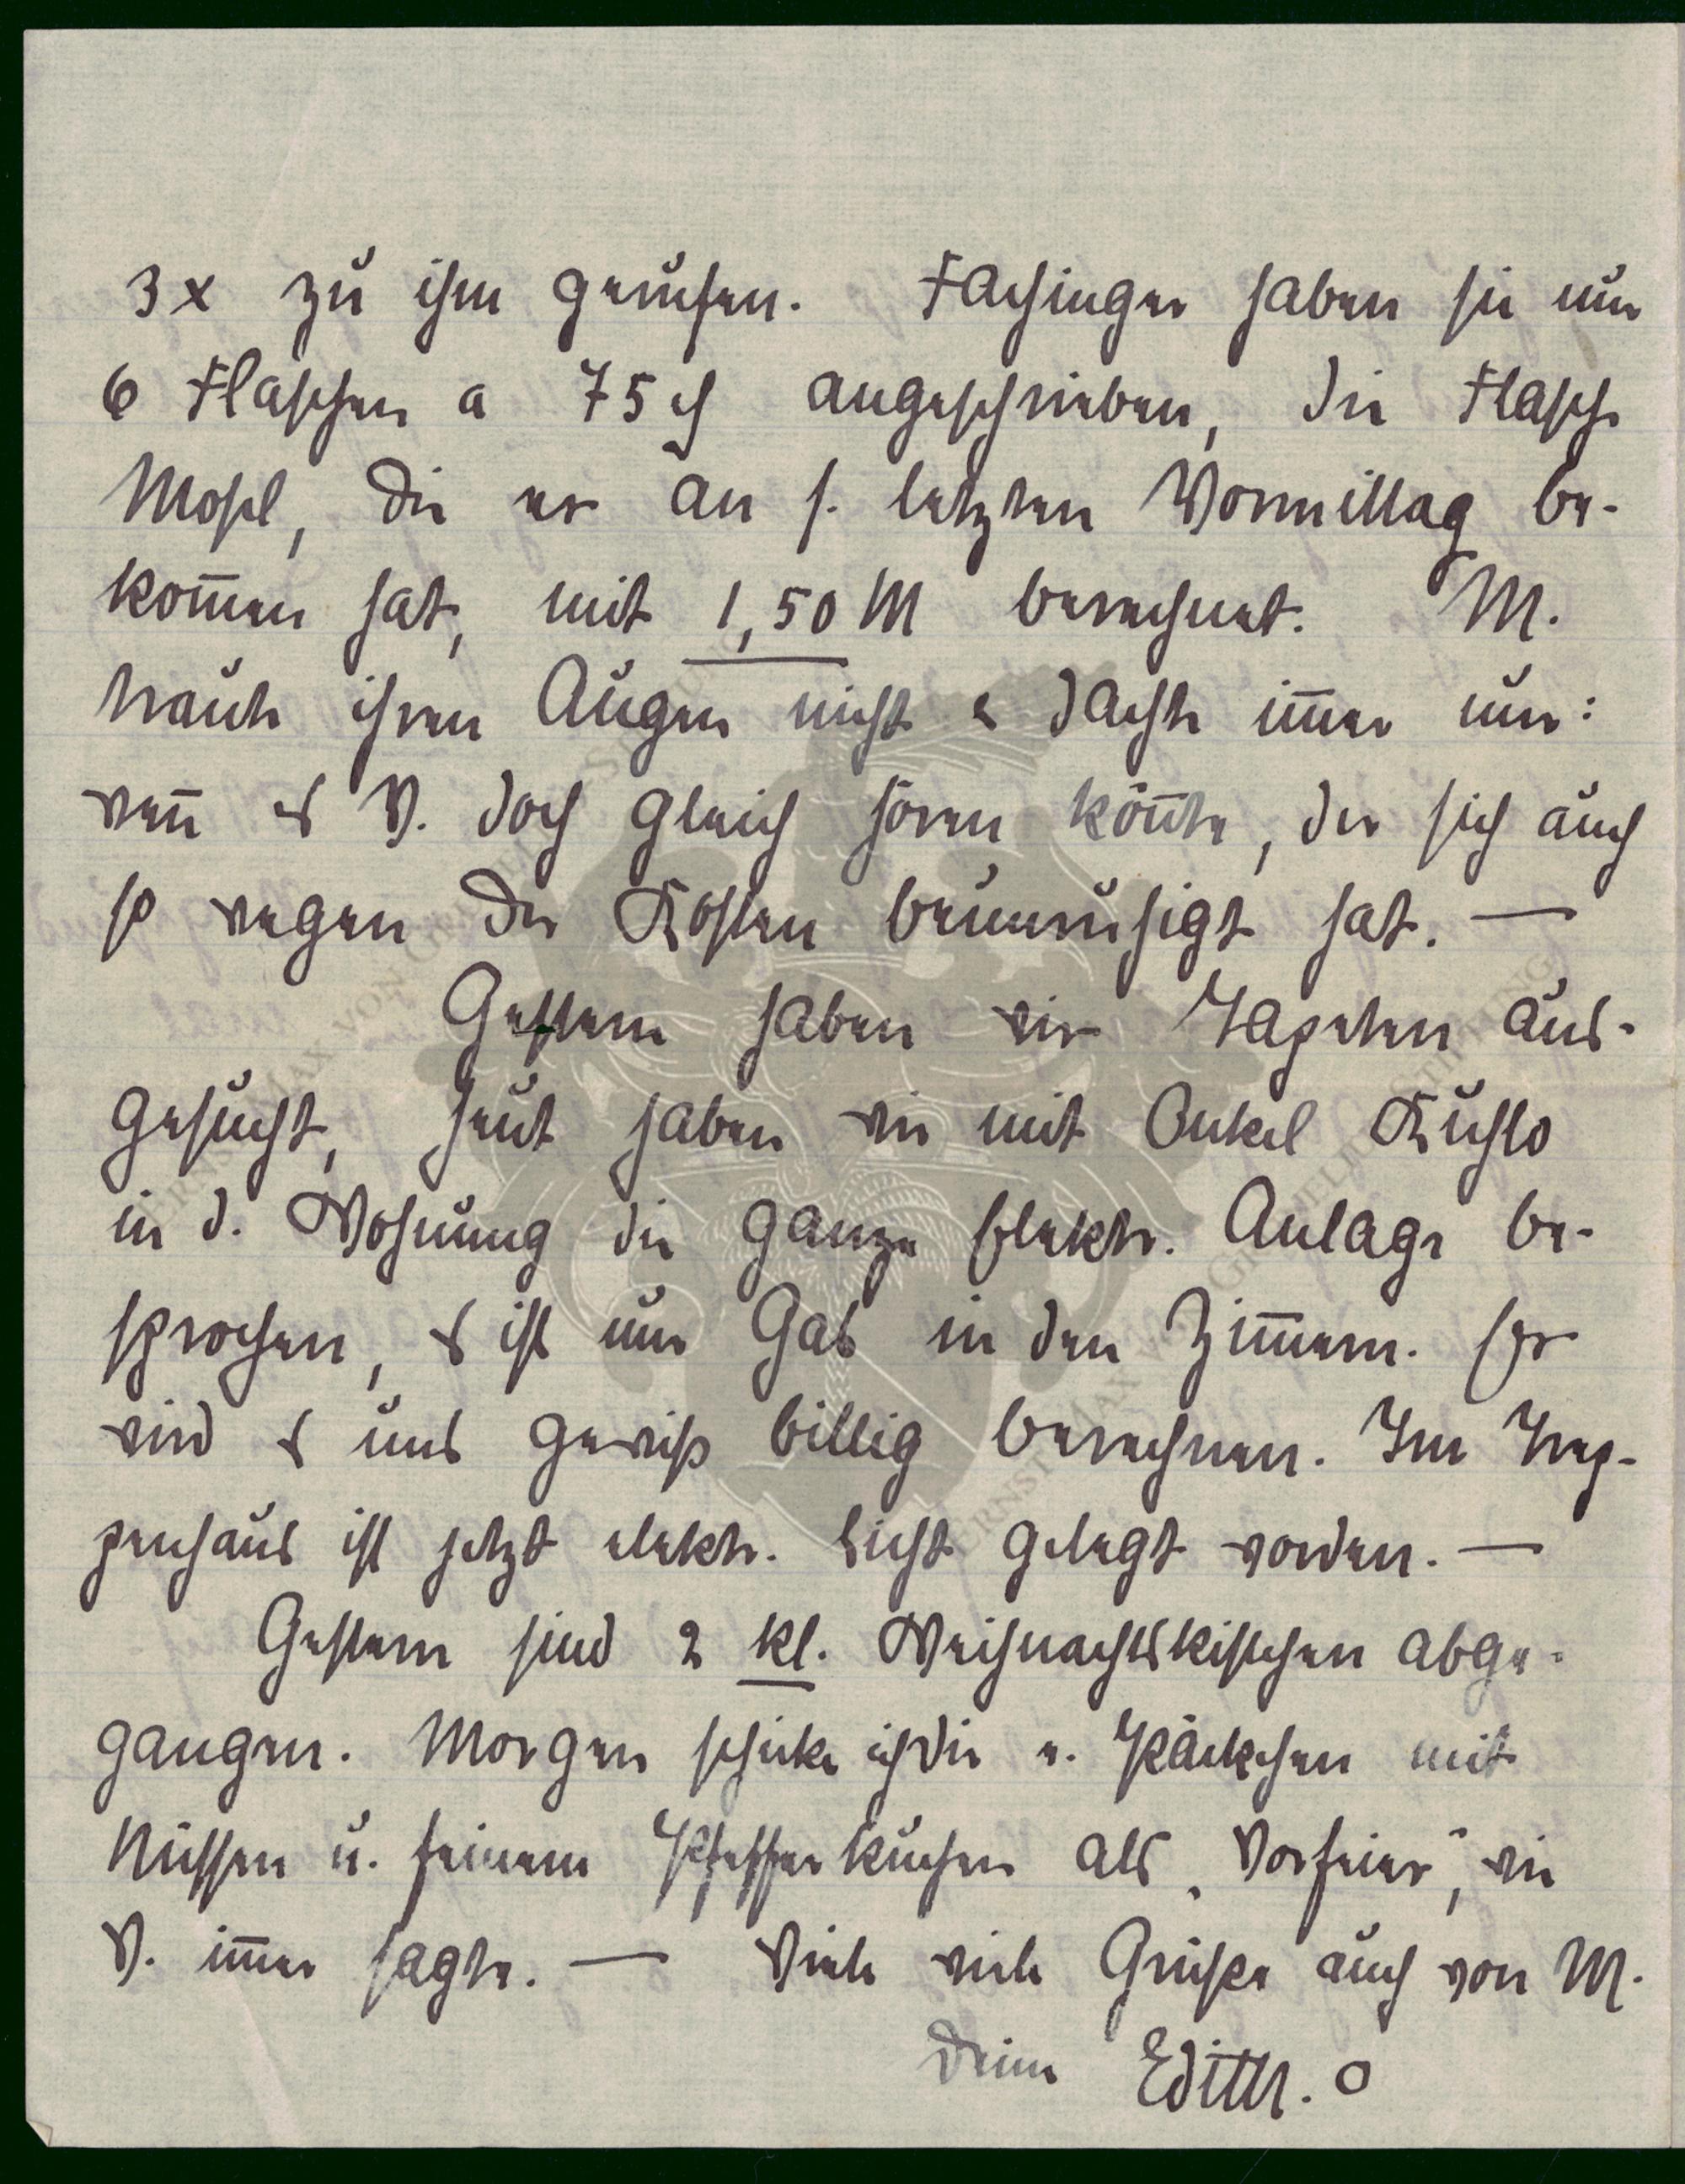 3x zu ihm gerufen. Fachinger haben sie nur
6 Flaschen a 75 ₰ angeschrieben, die Flasche
Mosel, die er an s. letzten Vormittag be-
kom̄en hat, mit 1,50 M berechnet. M.
traute ihren Augen nicht & dachte im̄er nur:
wen̄ es V. doch gleich hören kön̄te, der sich auch
so wegen der Kosten beunruhigt hat. —
Gestern haben wir Tapeten aus-
gesucht, heut haben wir mit Onkel Kuhlo
in d. Wohnung die ganze Elektr. Anlage be-
sprochen, es ist nur Gas in den Zim̄ern. Er
wird es uns gewiß billig berechnen. Im Trep-
penhaus ist jetzt elektr. Licht gelegt worden. —
Gestern sind 2 kl. Weihnachtskistchen abge-
gangen. Morgen schicke ich Dir e. Päckchen mit
Nüssen u. feinem Pfefferkuchen als „Vorfeier", wie
V. im̄er sagte. — Viele viele Grüße auch von M.
Deine Edith. O